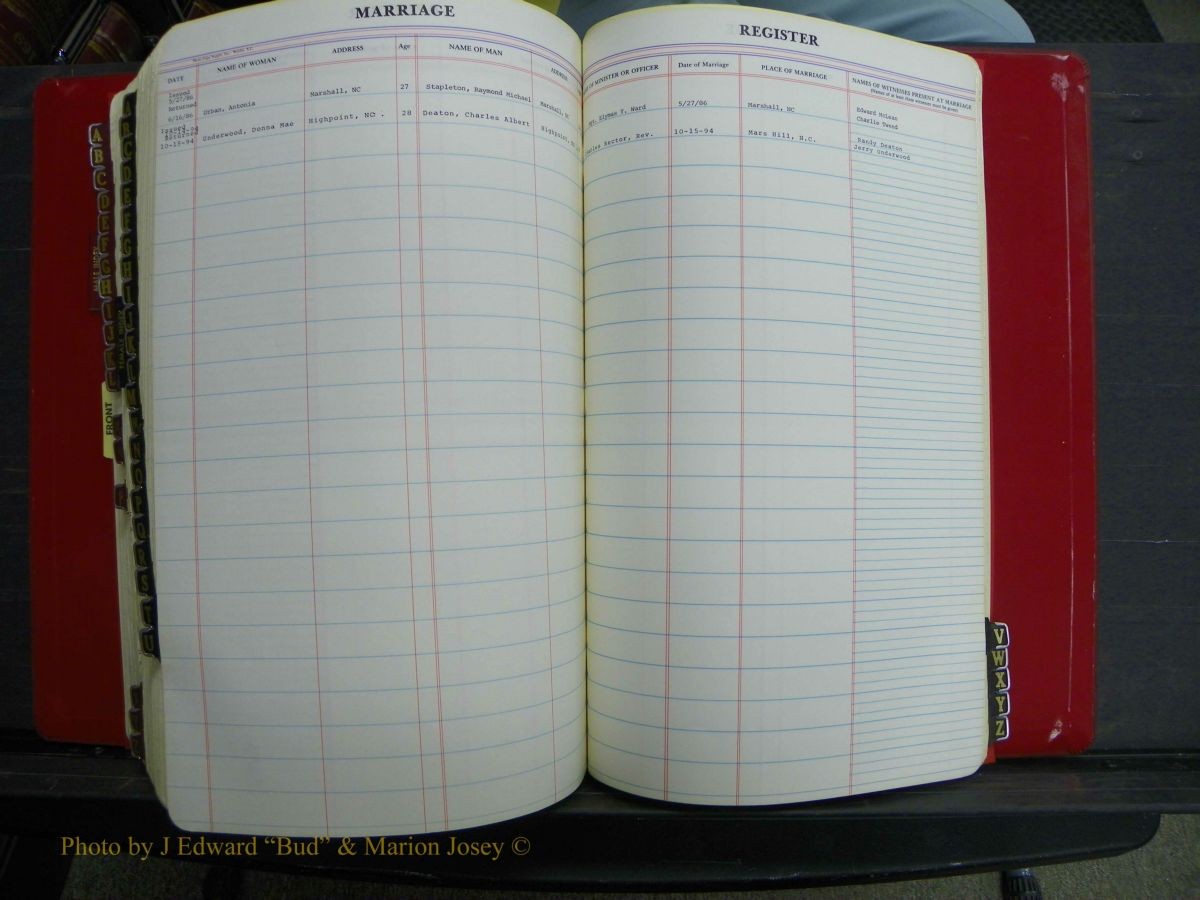 MARRIAGE
DATE NAME OF WOMAN ADDRESS Age NAME OF MAN ADDRESS
Issued
5/27/86
Returned
6/16/86 Urban, Antonia Marshall, NC 27 Stapleton, Raymond Michael Marshall, NC
10-15-94 Underwood, Donna Mae Highpoint, NC. 28 Deaton, Charles Albert Highpoint,
REGISTER
MINISTER OR OFFICER Date of Marriage PLACE OF MARRIAGE NAMES OF WITNESSES PRESENT AT MARRIAGE
(Names of at least three witnesses must be given)
T. Ward 5/27/86 Marshall, NC Edward McLean
Charlie Tweed
Rector, Rev. 10-15-94 Mars Hill, N.C. Randy Deaton
Jerry Underwood
A
B
C
D
E
F
G
H
I
FRONT
FEMALE INDEX
MALE INDEX
V
W
X
Y
Z
Photo by J Edward “Bud” & Marion Josey ©